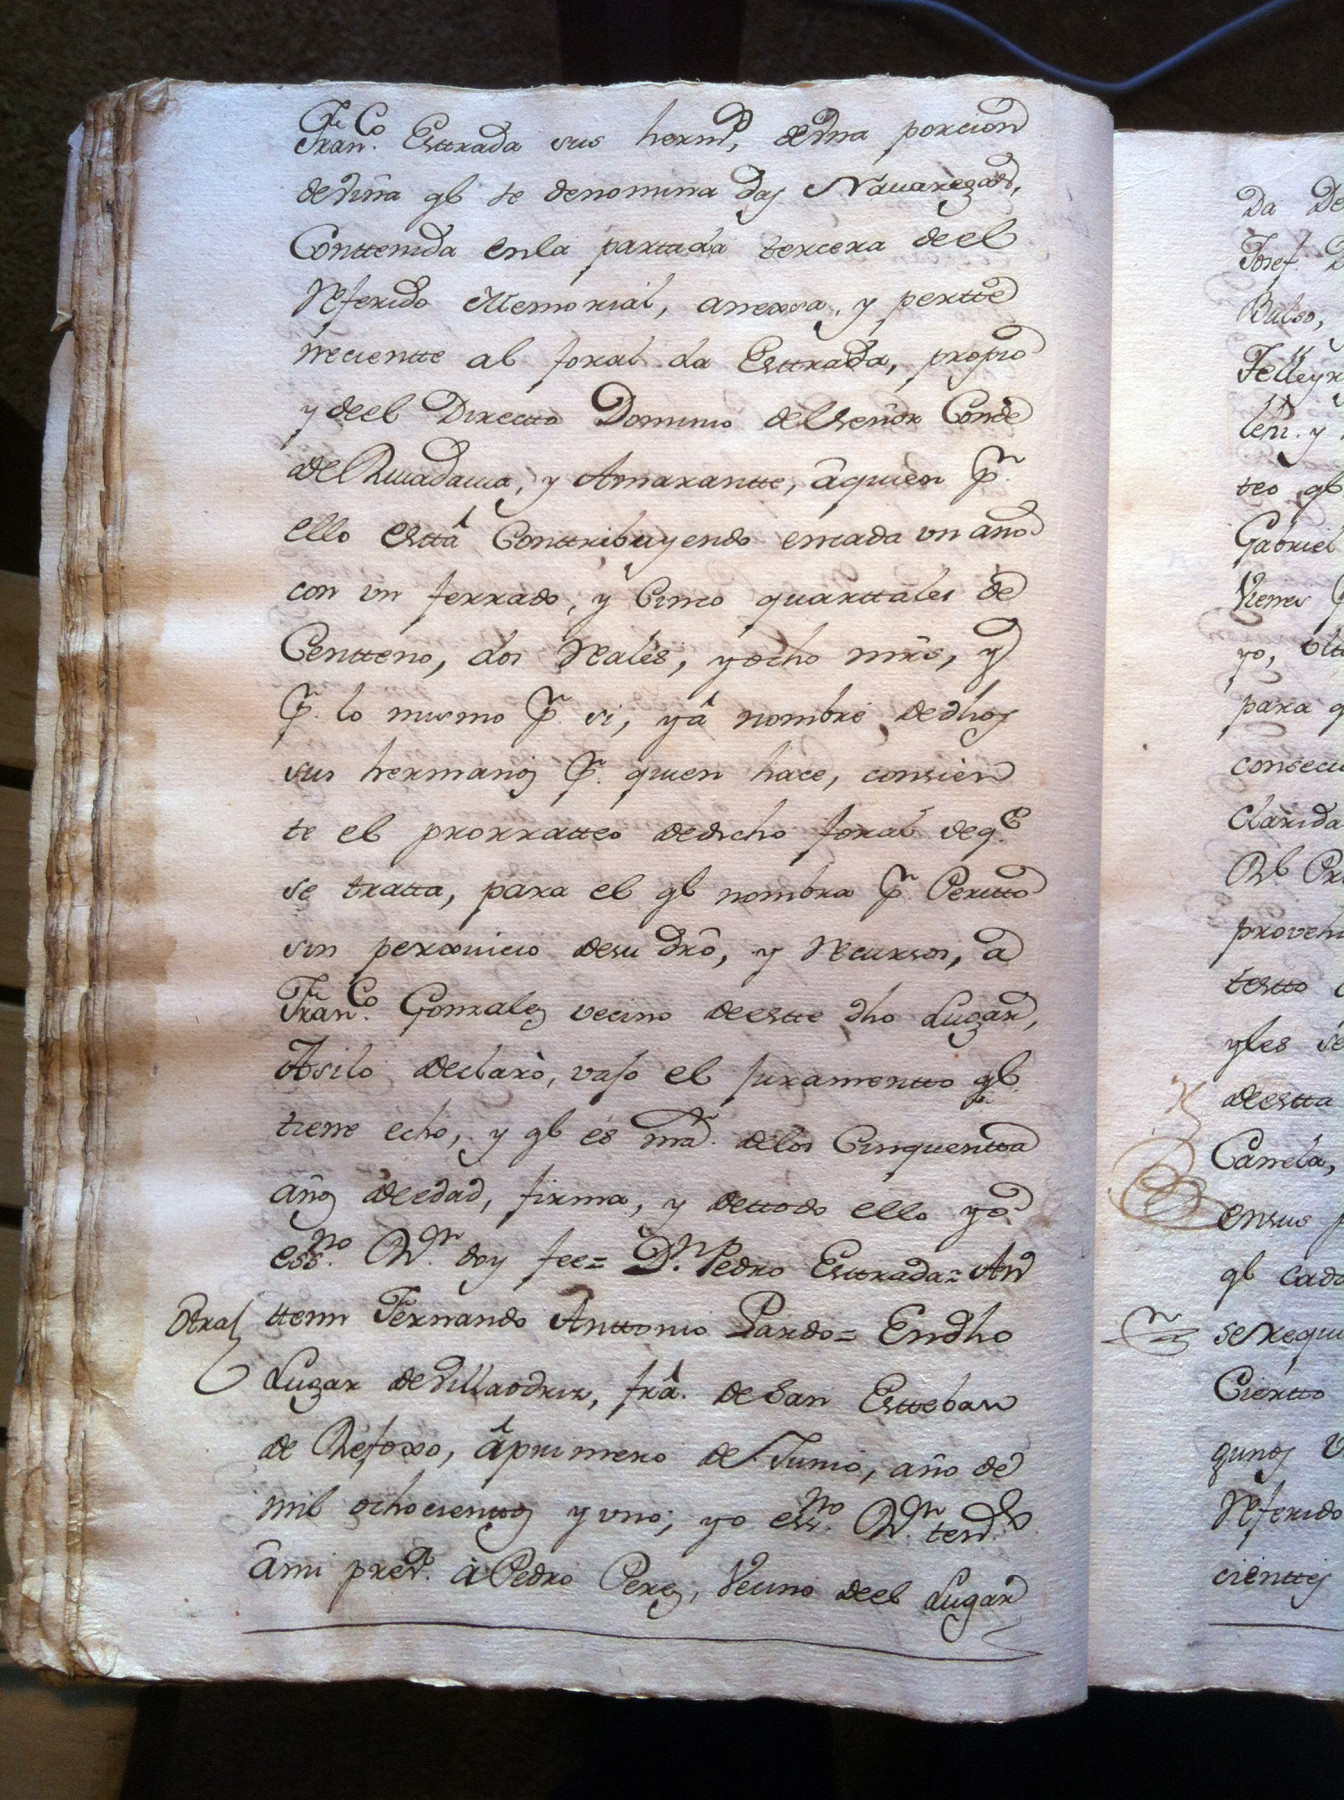 Fran.co Esttrada sus herm.s, de una porcion
de viña qe se denomina das Navaregas,
Conttenida en la partada tercera de el
Referido Memorial, anexsa, y pertte
neciente al foral da Esttrada, propio
y de el Directto Dominio del Señor Conde
de Rivadavia, y Amarantte, â quien Pr.
ello esttâ Conttribuyendo en cada un año
con un ferrado, y Cinco quarttales de
Centteno, dos Reales, y ocho mrs, y
Pr. lo mismo Pr. si, y â nombre de dhos
sus hermanos Pr. quien hace, consien
te el prorratteo de dicho foral de q.e
se tratta, para el qe nombra Pr. Peritto
sin perxuicio de su dro, y Recursos, a
Fran.co Gonzalez vecino de estte dho Lugar,
Asilo declarò, vajo el Juramentto qe
tiene echo, y qe es mâr. de los Cinquentta
años de edad, firma, y de ttodo ello yo
ess.no Rr. doy fee= D.n Pedro Esttrada= An
ttemi Fernando Anttonio Pardo= En dho
Otra
Lugar de Villaodriz, frâ. de San Estteban
de Refoxo, â primero de Junio, año de
mil ochocienttos y uno; yo ess.no Rr.
â mi pres.a â Pedro Perez, Vecino de el Lugar
Da De
Josef
Bulso,
Felleyr
len. y
teo qe
Gabriel
Vienes
yo,
para q
consecu
Clarida
proveni
testto
y les se
de estta
Canela,
ensus
qe cada
se requi
Ciertto
gunos
Referido
cienttes